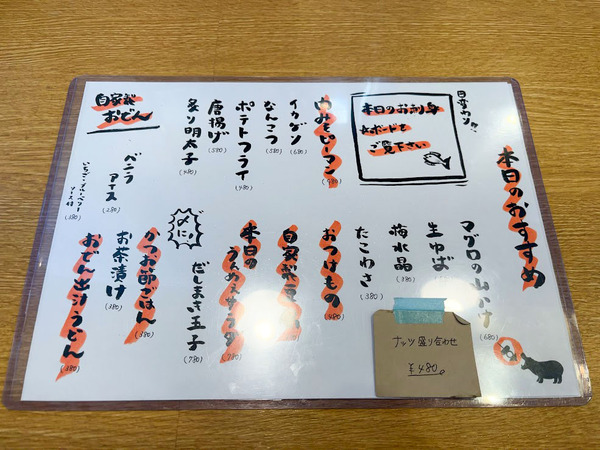 日替わり!!
本日のおすすめ
マグロの山かけ
(680)
生ゆば
(380)
梅水晶
(380)
たこわさ
(380)
ナッツ盛り合わせ
¥480。
本日のお刺身
☆ボードを
ご覧下さい
肉みそピーマン
イカゲソ
(680)
なんこつ
(580)
ポテトフライ
(480)
唐揚げ
(580)
炙り明太子
(480)
おつけもの
(480)
自家製
本日の
(780)
だしまき玉子
(780)
〆に!
かつお節ごはん
(380)
お茶漬け
(380)
おでん出汁うどん
(380)
自家製
おでん
バニラ
アイス
(280)
いちご・ブルーベリー
ソース付
(380)